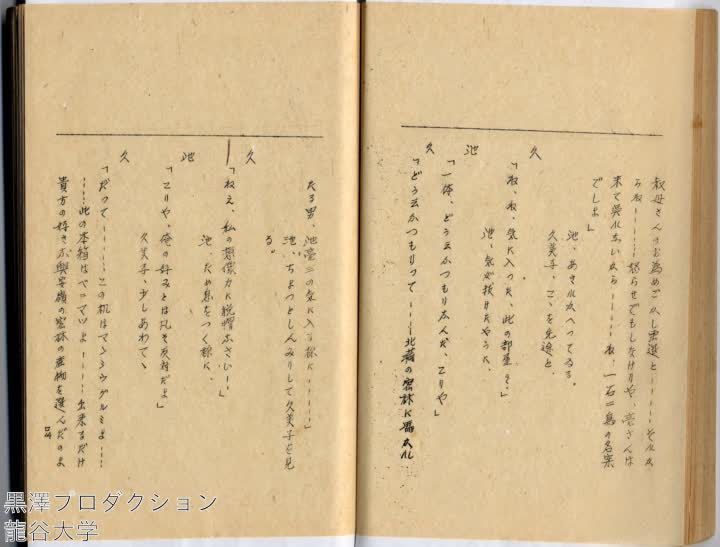 叔母さんのお為めごかし忠選と……それぢ
らね………怒らせでもしなけりや、壱さんは
来て呉れないから……ね、一石二鳥の名案
でしよ」
池、あきれかへつてゐる。
久美子、こゝを先途と、
久
「ね、ね、気に入つた、此の部屋を」
池、気が抜けたやうに、
池
「一体、どう云ふつもりなんだ、こりや」
久
「どう云ふつもりつて……北満の密林に暮ふれ
たる男、池壱二の気に入る様に……」
池、ちよつとしんみりして久美子を見
る。
久
「ねえ、私の想像力に脱帽なさい！」
池、ため息をつく様に、
池
「こりや、俺の好みとは凡そ反対だよ」
久美子、少しあわてゝ
久
「だつて………この机はてうウグルミよ……
……此の本箱はペーヅマツよ………出来るだけ
貴方の好きな興安嶺の密林の産物を選んだのよ
黒澤プロダクション
龍谷大学